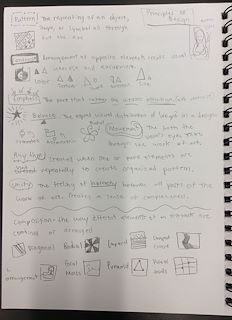 Principles of Design
Pattern: The repeating of an object,
shape, or symbol all through
out the art
Contrast: Arrangement of opposite elements create visual
interest and excitement.
Color Texture Shape Size
Emphasis: The part that catches the viewers attention
Balance: The equal visual distribution of weight in a design
Symmetrical
Movement: The path the
viewer's eyes take
through the work of art.
Rhythm: Created when one or more elements are
used repeatedly to create organized pattern.
Unity: The feeling of harmony between all parts of the
work of art, creates a sense of completeness.
Composition: the way different elements of an artwork are
combined or arranged
Diagonal Radial Layered
L arrangement Focal Mass Pyramid Rule of thirds